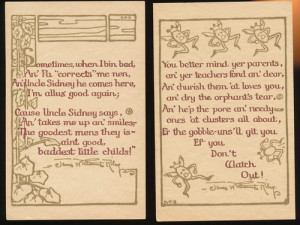 Sometimes, when I bin bad,
An' Pa "corrects" me nen,
An' Uncle Sidney he comes here,
I'm allus good again;
'Cause Uncle Sidney says,
An' takes me up an' smiles—
The goodest mens they is
ain't good,
baddest little childs!"
James Whitcomb Riley
You better mind yer parents,
an' yer teachers fond an' dear,
An' churish them 'at loves you,
an' dry the orphant's tear,
An' he'p the pore an' needy
ones 'at clusters all about,
Er the gobble-uns'll git you
Ef you
Don't
Watch
Out!
James Whitcomb Riley